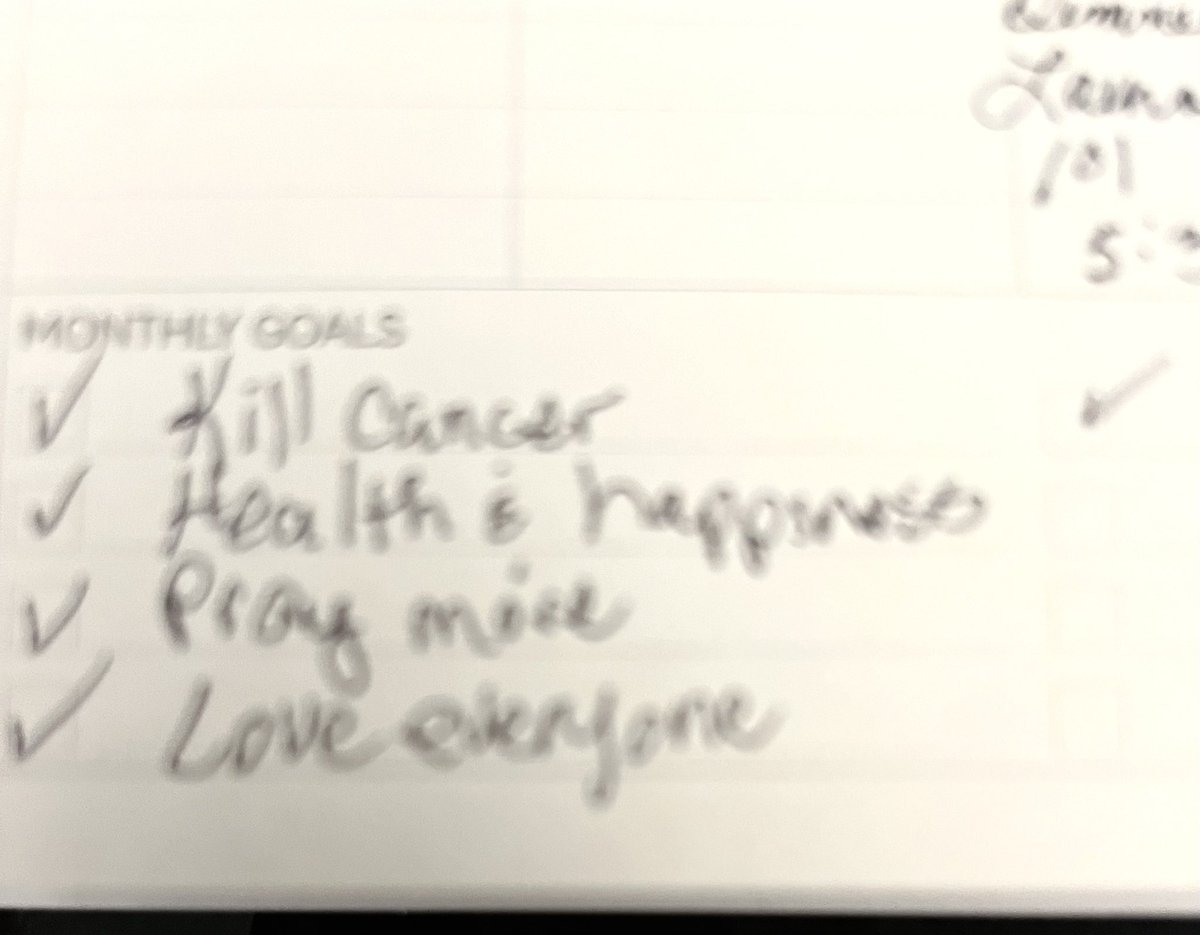 101
MONTHLY GOALS
✓ Kill Cancer
✓ Health & happiness
✓ Pray more
✓ Love everyone